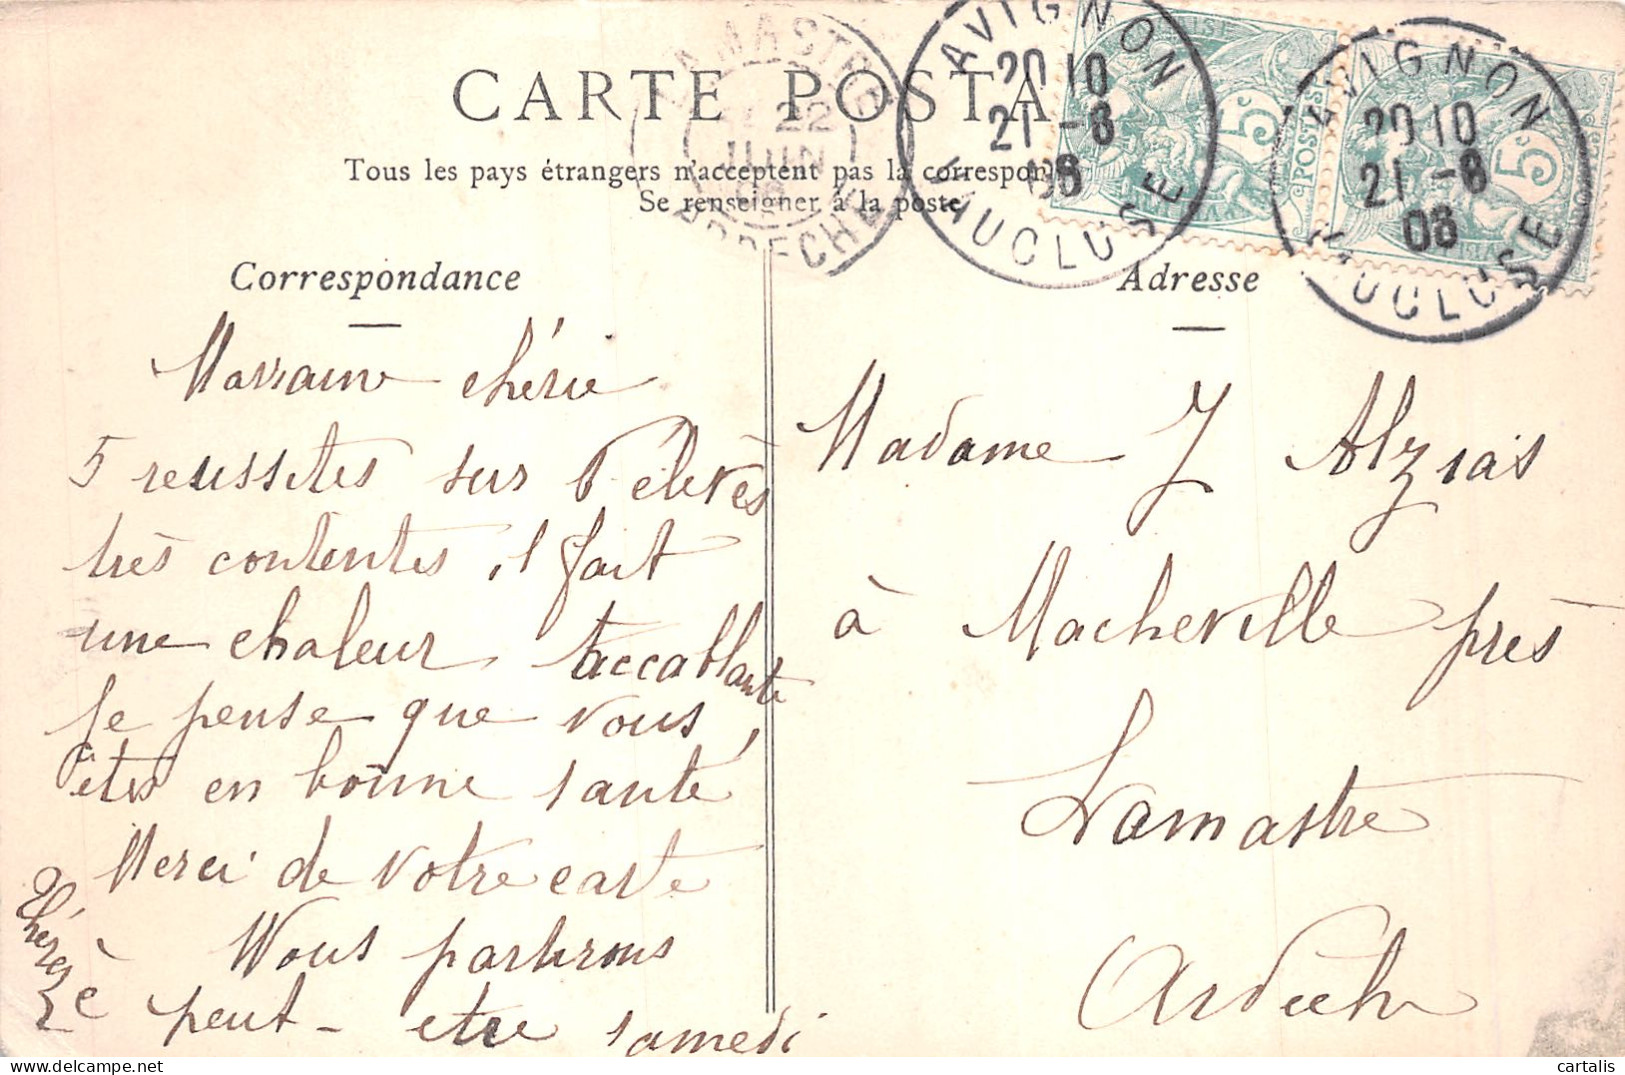 CARTE POSTA
Tous les pays étrangers n'acceptent pas la correspon
Se renseigner à la poste
LAMASTRE
22
JUIN
08
ARDECHE
AVIGNON
20 10
21 -6
08
VAUCLUSE
AVIGNON
20 10
21 -6
08
VAUCLUSE
5c
POSTES
5c
Correspondance
Marraine chérie
5 réussites sur 6 élèves
très contentes, il fait
une chaleur accablante
Je pense que vous
êtes en bonne santé
Merci de votre carte
Nous partirons
peut-etre samedi
Thérèse
Adresse
Madame J Alzias
à Macheville près
Lamastre
Ardèche
cartalis